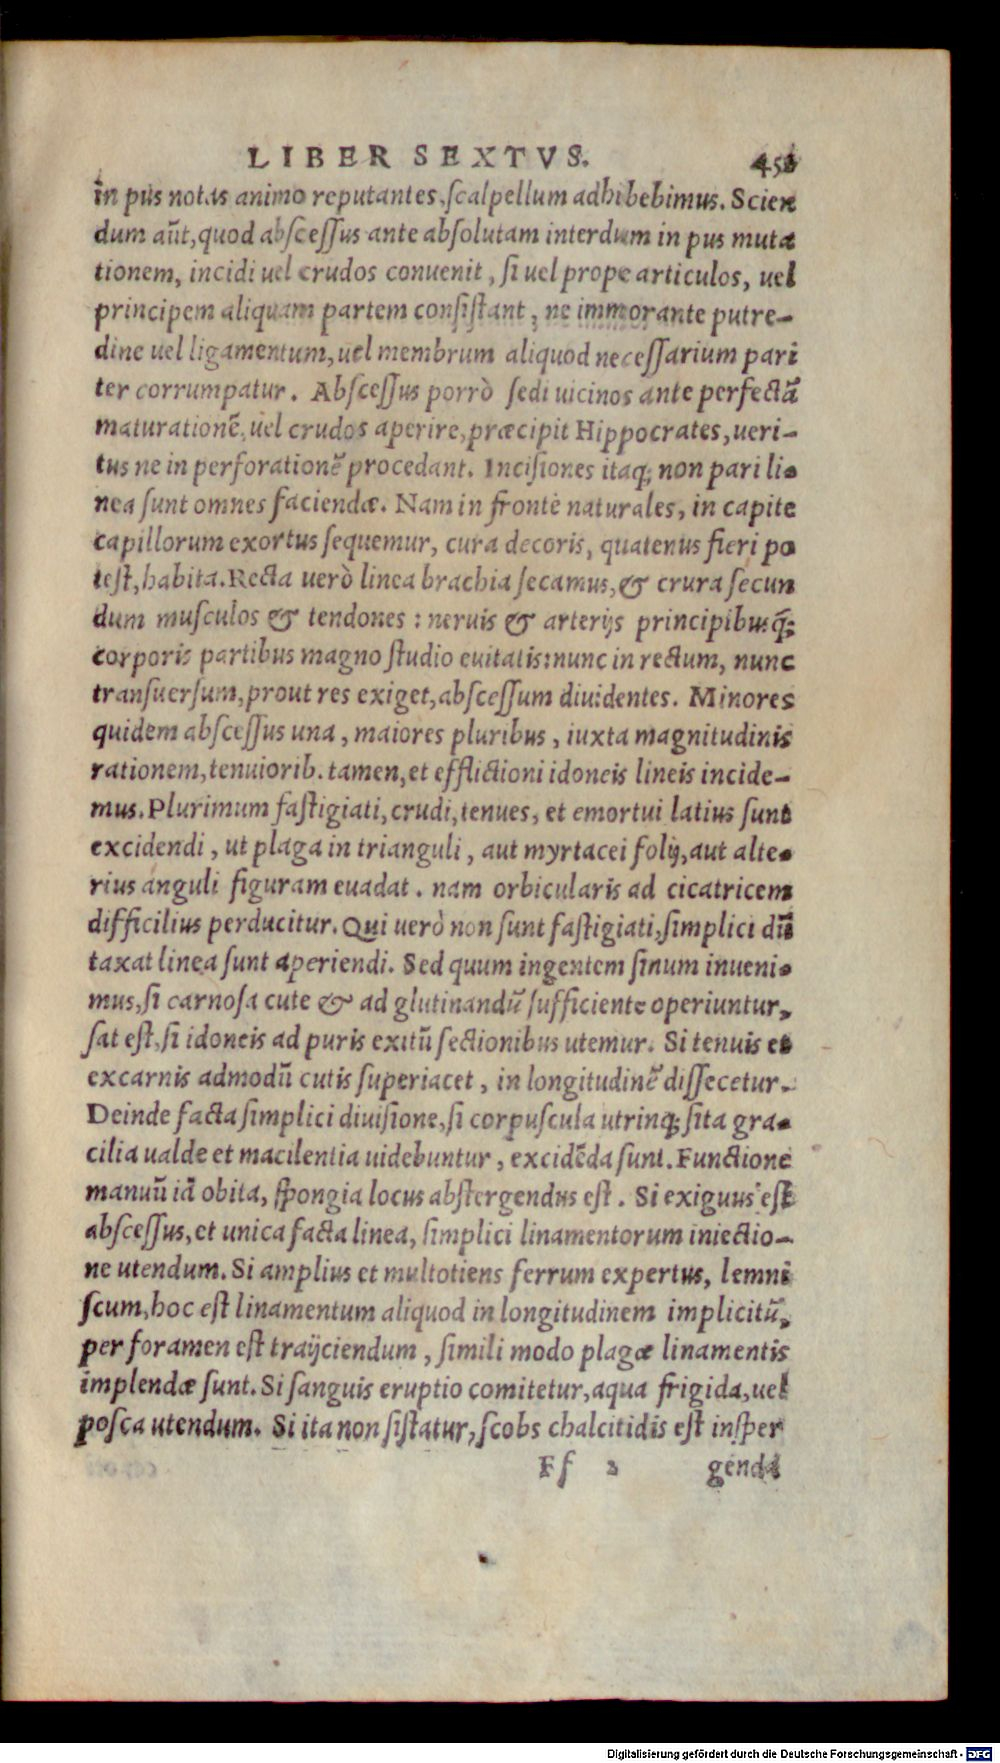 LIBER SEXTVS. 451
in pus notas animo reputantes, ſcalpellum adhibebimus. Scien
dum aūt, quod abſceſſus ante abſolutam interdum in pus muta
tionem, incidi uel crudos conuenit, ſi uel prope articulos, uel
principem aliquam partem conſiſtant, ne immorante putre-
dine uel ligamentum, uel membrum aliquod neceſſarium pari
ter corrumpatur. Abſceſſus porrò ſedi uicinos ante perfectā
maturationē, uel crudos aperire, præcipit Hippocrates, ueri-
tus ne in perforationē procedant. Inciſiones itaq; non pari li-
nea ſunt omnes faciendæ. Nam in fronte naturales, in capite
capillorum exortus ſequemur, cura decoris, quatenus fieri po
teſt, habita. Recta uerò linea brachia ſecamus, & crura ſecun
dum muſculos & tendones: neruis & arterijs principibusq́;
corporis partibus magno ſtudio euitatis: nunc in rectum, nunc
tranſuerſum, prout res exiget, abſceſſum diuidentes. Minores
quidem abſceſſus una, maiores pluribus, iuxta magnitudinis
rationem, tenuiorib. tamen, et efflictioni idoneis lineis incide-
mus. Plurimum faſtigiati, crudi, tenues, et emortui latius ſunt
excidendi, ut plaga in trianguli, aut myrtacei folij, aut alte-
rius anguli figuram euadat. nam orbicularis ad cicatricem
difficilius perducitur. Qui uerò non ſunt faſtigiati, ſimplici dū
taxat linea ſunt aperiendi. Sed quum ingentem ſinum inueni-
mus, ſi carnoſa cute & ad glutinandū ſufficiente operiuntur,
ſat eſt, ſi idoneis ad puris exitū ſectionibus utemur. Si tenuis et
excarnis admodū cutis ſuperiacet, in longitudinē diſſecetur.
Deinde facta ſimplici diuiſione, ſi corpuſcula utrinq; ſita gra-
cilia ualde et macilentia uidebuntur, excidēda ſunt. Functione
manuū iā obita, ſpongia locus abſtergendus eſt. Si exiguus eſt
abſceſſus, et unica facta linea, ſimplici linamentorum iniectio-
ne utendum. Si amplius et multotiens ferrum expertus, lemni
ſcum, hoc eſt linamentum aliquod in longitudinem implicitū,
per foramen eſt traijciendum, ſimili modo plagæ linamentis
implendæ ſunt. Si ſanguis eruptio comitetur, aqua frigida, uel
poſca utendum. Si ita non ſiſtatur, ſcobs chalcitidis eſt inſper
Ff 2 genda
Digitalisierung gefördert durch die Deutsche Forschungsgemeinschaft - DFG